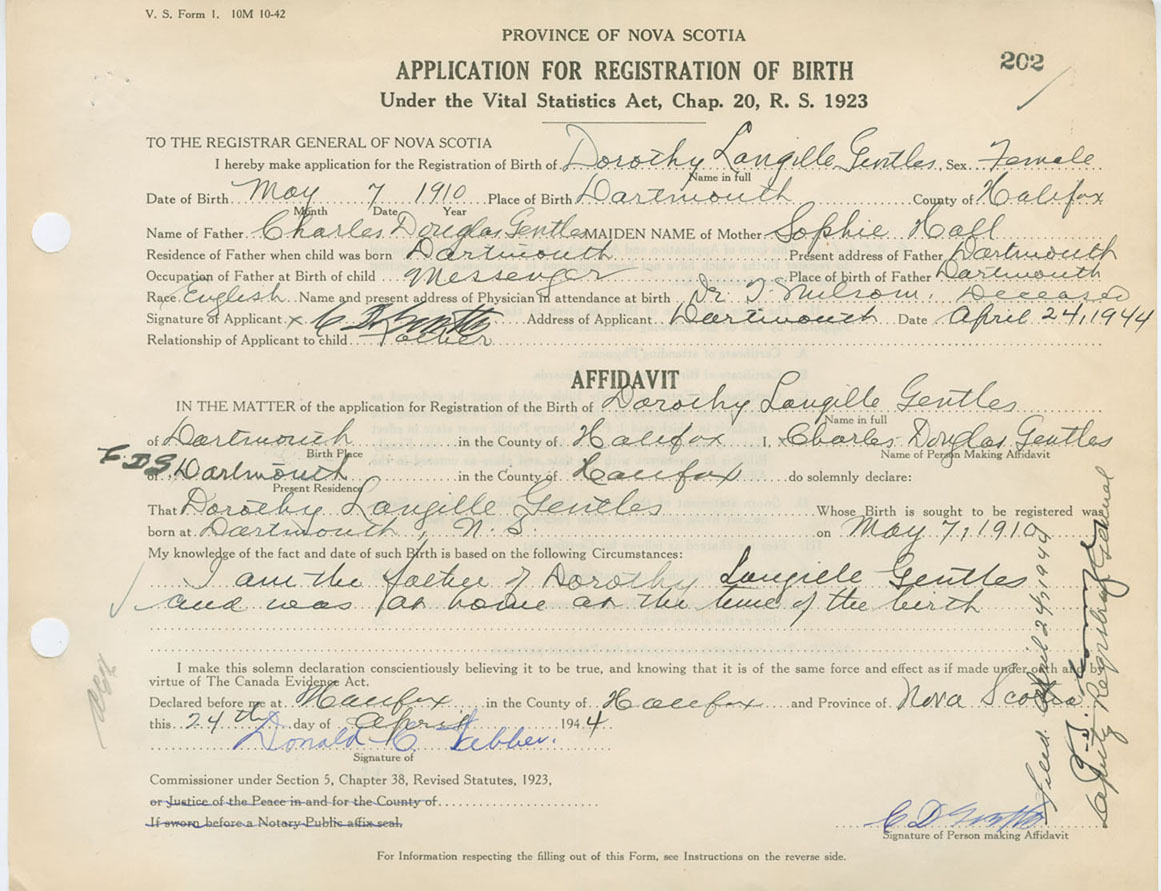 V. S. Form 1. 10M 10-42
PROVINCE OF NOVA SCOTIA
202
APPLICATION FOR REGISTRATION OF BIRTH
Under the Vital Statistics Act, Chap. 20, R. S. 1923
TO THE REGISTRAR GENERAL OF NOVA SCOTIA
I hereby make application for the Registration of Birth of Dorothy Langille Gentles Sex Female
Name in full
Date of Birth May 7 1910 Place of Birth Dartmouth County of Halifax
Month Date Year
Name of Father Charles Douglas Gentles MAIDEN NAME of Mother Sophie Hall
Residence of Father when child was born Dartmouth Present address of Father Dartmouth
Occupation of Father at Birth of child Messenger Place of birth of Father Dartmouth
Race English Name and present address of Physician in attendance at birth Dr Deceased
Signature of Applicant x C D Gentles Address of Applicant Dartmouth Date April 24, 1944
Relationship of Applicant to child Father
AFFIDAVIT
IN THE MATTER of the application for Registration of the Birth of Dorothy Langille Gentles
Name in full
of Dartmouth in the County of Halifax I, Charles Douglas Gentles
Birth Place Name of Person Making Affidavit
C D G
of Dartmouth in the County of Halifax do solemnly declare:
Present Residence
That Dorothy Langille Gentles Whose Birth is sought to be registered was
born at Dartmouth, N. S. on May 7, 1910
My knowledge of the fact and date of such Birth is based on the following Circumstances:
I am the father of Dorothy Langille Gentles
and was at home at the time of the birth
I make this solemn declaration conscientiously believing it to be true, and knowing that it is of the same force and effect as if made under oath by
virtue of The Canada Evidence Act.
Declared before me at Halifax in the County of Halifax and Province of Nova Scotia
this 24th day of April 1944
Donald C Webber.
Signature of
Commissioner under Section 5, Chapter 38, Revised Statutes, 1923,
or Justice of the Peace in and for the County of
If sworn before a Notary Public affix seal.
C D Gentles
Signature of Person making Affidavit
For Information respecting the filling out of this Form, see Instructions on the reverse side.
Filed. April 24, 1944
Deputy Registrar General